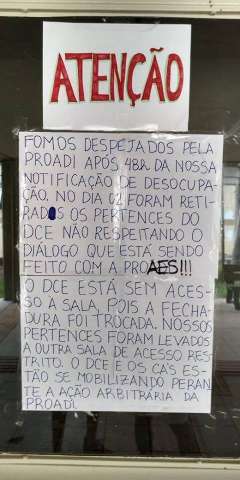 ATENÇÃO
FOMOS DESPEJADOS PELA
PROADI APÓS 48h DA NOSSA
NOTIFICAÇÃO DE DESOCUPA-
ÇÃO. NO DIA 02 FORAM RETI-
RADOS OS PERTENCES DO
DCE NÃO RESPEITANDO O
DIÁLOGO QUE ESTÁ SENDO
FEITO COM A PROAES!!!
O DCE ESTÁ SEM ACES-
SO À SALA, POIS A FECHA-
DURA FOI TROCADA. NOSSOS
PERTENCES FORAM LEVADOS
A OUTRA SALA DE ACESSO RES-
TRITO. O DCE E OS CA'S ES-
TÃO SE MOBILIZANDO PERAN-
TE A AÇÃO ARBITRÁRIA DA
PROADI.